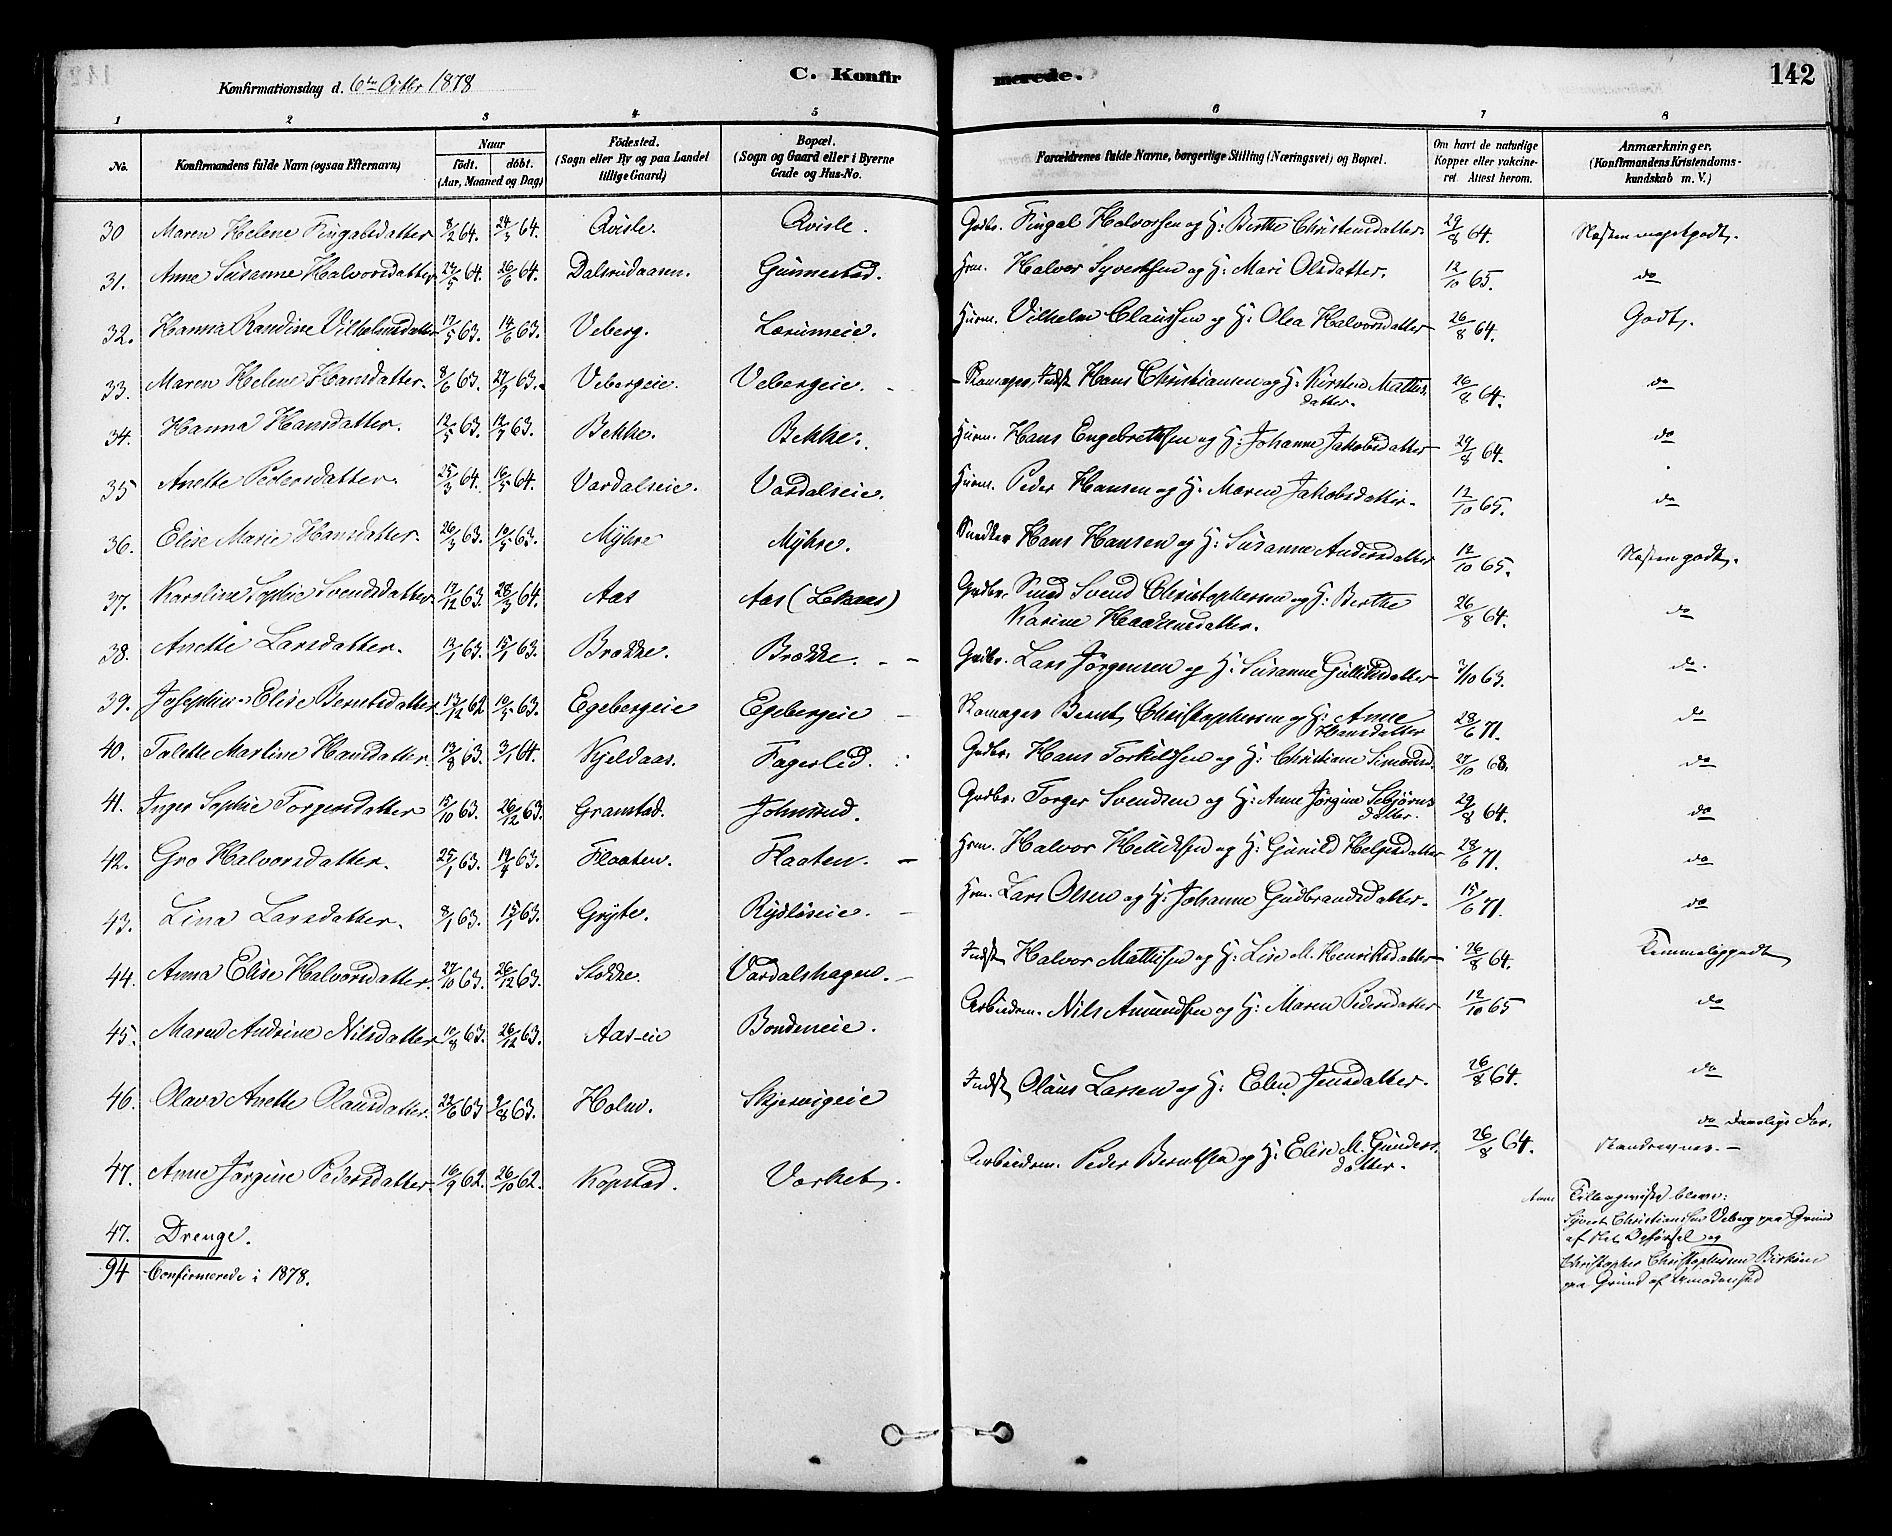 142
Konfirmationsdag d. 6te Octbr 1878
C. Konfir merede.
1 2 3 4 5 6 7 8
No. Konfirmandens fulde Navn (ogsaa Efternavn) Naar født. døbt. (Aar, Maaned og Dag) Födested. (Sogn eller By og paa Landet tillige Gaard) Bopæl. (Sogn og Gaard eller i Byerne Gade og Hus-No. Forældrenes fulde Navne, borgerlige Stilling (Næringsvei) og Bopæl. Om havt de naturlige Kopper eller vakcineret Attest herom. Anmærkninger. (Konfirmandens Kristendomskundskab m. V.)
30 Maren Helene Fingalsdatter 8/2 64. 24/3 64. Qvisle. Qvisle. Gudbr. Fingal Halvorsen og H: Berthe Christensdatter. 29/8 64. Næsten megetgodt.
31. Anne Susanne Halvorsdatter 64. 26/6 64. Dalsrudaasen. Gunnestad. Hrm. Halvor Syvertsen og H: Mari Olsdatter. 12/10 65. do
32. Hanna Randine Vilhelmsdatter 17/5 63. 14/6 63. Veberg. Lærumeie. Hurm. Vilhelm Claussen og H: Olea Halvorsdatter 26/8 64. Godt.
33. Maren Helene Hansdatter. 8/6 63. 63. Vebergeie. Vebergeie. Skomager, Indst Hans Christiansen og H: Kirsten Mathisdatter. 26/8 64. do
34. Hanna Hansdatter. 12/5 63. 63. Bekke. Bekke. Hurm. Hans Engebrethsen og H: Johanne Jakobsdatter 29/8 64. do
35 Anette Pedersdatter. 25/3 64. 16/5 64. Vardalseie. Vardalseie. Hurm. Peder Hansen og H: Maren Jakobsdatter. 12/10 65. do
36. Elise Marie Hansdatter. 26/3 63. 10/5 63. Myhre Myhre. Snedker Hans Hansen og H: Susanne Andersdatter 12/10 65. Næsten godt.
37. Karoline Sophie Svendsdatter 17/12 63. 28/3 64. Aas Aas (Lekaas) Gudbr. Smed Svend Christophersen og H: Berthe Karine Haakensdatter. 26/8 64. do
38. Anette Larsdatter. 13/1 63. 15/1 63. Brække. Brække. Gudbr. Lars Jørgensen og H: Susanne Gulliksdatter 7/10 63. do.
39. Josephine Elise Berntsdatter 13/12 62 10/5 63. Egebergeie Egebergeie Skomager Bernt Christophersen og H: Anne Hansdatter 28/6 71. do
40. Tolette Martine Hansdatter. 13/8 63. 3/1 64. Kjeldaas. Fagerlid. Gudbr. Hans Torkildsen og H: Christiane Simonsd. 27/10 68. do
41. Inger Sophie Torgersdatter 15/10 63. 26/12 63. Granstad. Johnsrud. Gudbr. Torger Svendsen og H: Anne Jørgine datter. 29/8 64. do
42. Gro Halvorsdatter. 25/1 63. 19/4 63. Flaaten. Flaaten. Hrm. Halvor Helliksen og H: Gunild Helgesdatter 28/6 71. do
43. Lina Larsdatter. 8/1 63. 63. Gryte. Rydløseie. Hrm. Lars Olsen og H: Johanne Gudbrandsdatter. 15/6 71. do
44. Anna Elise Halvorsdatter. 27/10 63. 26/12 63. Stokke. Vardalshagen. Indst Halvor Mathisen og H: Lise M. Henriksdatter 26/8 64. Temmeliggodt
45. Maren Andrine Nilsdatter 12/8 63. 26/12 63. Aas-eie Bondeneie. Arbeidsm. Nils Amundsen og H: Maren Pedersdatter 12/10 65 do
46. Olava Anette Olausdatter. 22/6 63 2/8 63. Holm. Skjersvigeie Indst Olaus Larsen og H: Elen Jensdatter. 26/8 64. do
47. Anne Jørgine Pedersdatter. 16/9 62. 26/10 62. Kopstad. Værket. Arbeidsm. Peder Berntsen og H: Elise M. Gundersdatter. 26/8 64. do daarlige Forstandsevner.
47. Drenge.
94 Confirmerede i 1878.
Anm Tilbageviste bleve:
Syvert Christiansen Veberg paa Grund
af slet Opførsel og
Christopher Christophersen
paa Grund af Umodenhed